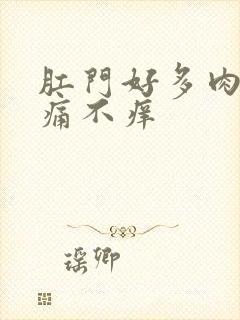 肛門好多肉
痛不痒
瑶卿